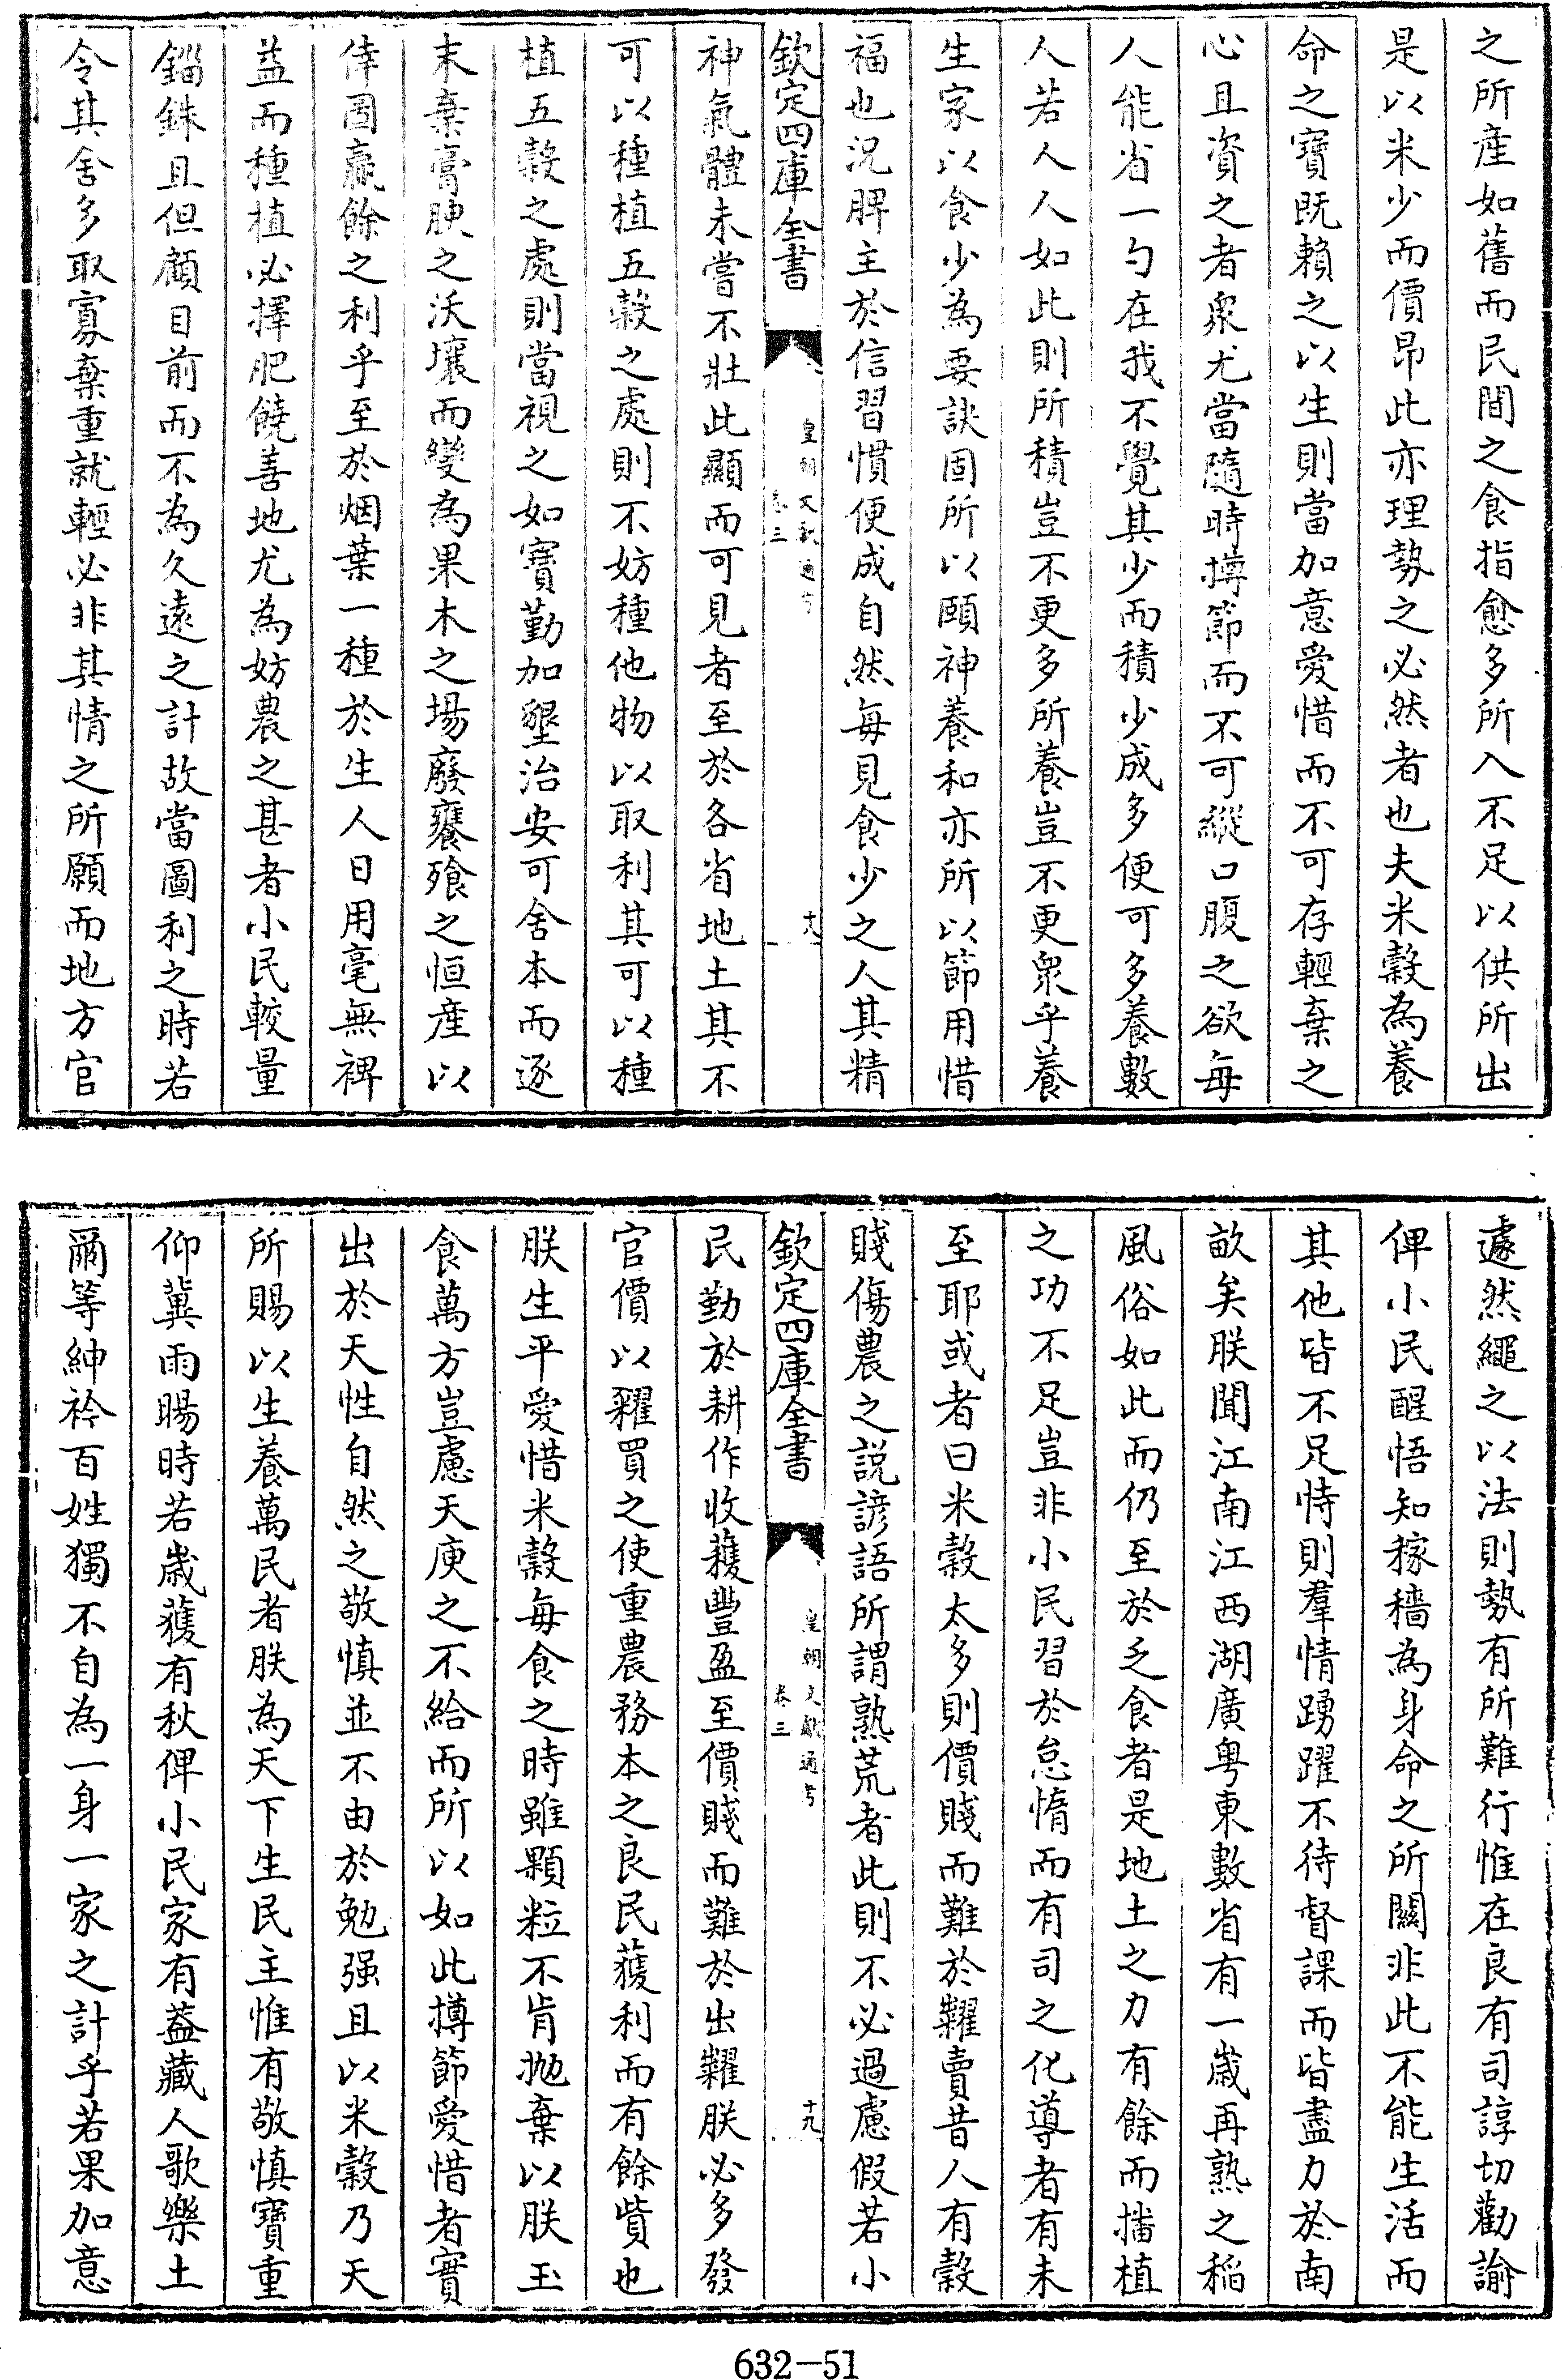 之所產如舊而民間之食指愈多所入不足以供所出
是以米少而價昻此亦理勢之必然者也夫米穀為養
命之寶既賴之以生則當加意愛惜而不可存輕棄之
心且資之者衆尤當隨時撙節而不可縱口腹之欲每
人能省一勺在我不覺其少而積少成多便可多養數
人若人人如此則所積豈不更多所養豈不更衆乎養
生家以食少為要訣固所以頤神養和亦所以節用惜
福也況脾主於信習慣便成自然每見食少之人其精
欽定四庫全書
皇朝文獻通考
卷三
十八
神氣體未嘗不壯此顯而可見者至於各省地土其不
可以種植五穀之處則不妨種他物以取利其可以種
植五穀之處則當視之如寶勤加墾治安可舍本而逐
末棄膏腴之沃壤而變為果木之場廢饔飱之恒產以
倖圖贏餘之利乎至於烟葉一種於生人日用毫無裨
益而種植必擇肥饒善地尤為妨農之甚者小民較量
錙銖且但顧目前而不為久遠之計故當圖利之時若
令其舍多取寡棄重就輕必非其情之所願而地方官
遽然繩之以法則勢有所難行惟在良有司諄切勸諭
俾小民醒悟知稼穡為身命之所關非此不能生活而
其他皆不足恃則羣情踴躍不待督課而皆盡力於南
畝矣朕聞江南江西湖廣粤東數省有一歲再熟之稻
風俗如此而仍至於乏食者是地土之力有餘而播植
之功不足豈非小民習於怠惰而有司之化導者有未
至耶或者曰米穀太多則價賤而難於糶賣昔人有穀
賤傷農之説諺語所謂熟荒者此則不必過慮假若小
欽定四庫全書
皇朝文獻通考
卷三
十九
民勤於耕作收穫豐盈至價賤而難於出糶朕必多發
官價以糴買之使重農務本之良民獲利而有餘貲也
朕生平愛惜米穀每食之時雖顆粒不肯抛棄以朕玉
食萬方豈慮天庾之不給而所以如此撙節愛惜者實
出於天性自然之敬慎並不由於勉强且以米穀乃天
所賜以生養萬民者朕為天下生民主惟有敬慎寶重
仰冀雨暘時若歲獲有秋俾小民家有葢藏人歌樂土
爾等紳衿百姓獨不自為一身一家之計乎若果加意
632-51